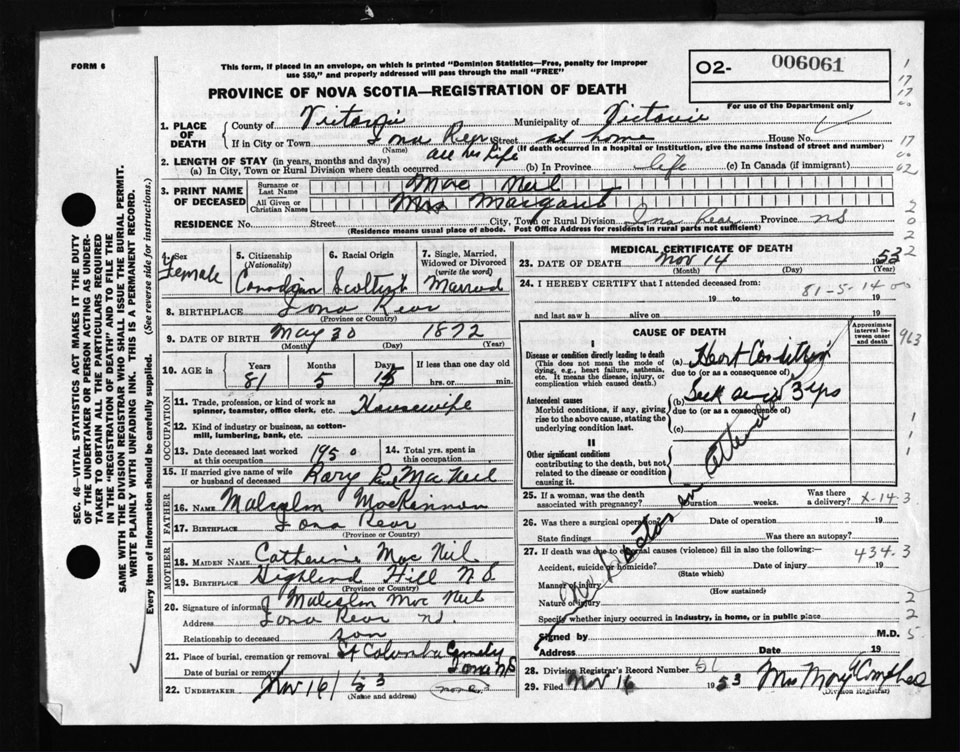 FORM 6
This form, if placed in an envelope, on which is printed "Dominion Statistics—Free, penalty for improper
use $50," and properly addressed will pass through the mail "FREE"
O2- 006061
PROVINCE OF NOVA SCOTIA—REGISTRATION OF DEATH
For use of the Department only
1. PLACE OF DEATH County of Victoria Municipality of Victoria
If in City or Town Iona Rear Street at home House No.
(Name) (If death occurred in a hospital or institution, give the name instead of street and number)
2. LENGTH OF STAY (in years, months and days)
(a) In City, Town or Rural Division where death occurred all his life (b) In Province life (c) In Canada (if immigrant)
3. PRINT NAME OF DECEASED Surname or Last Name Mac Neil
All Given or Christian Names Mrs Margaret
RESIDENCE No. Street City, Town or Rural Division Iona Rear Province NS
(Residence means usual place of abode. Post Office Address for residents in rural parts not sufficient)
4. Sex Female 5. Citizenship (Nationality) Canadian 6. Racial Origin Scottish 7. Single, Married, Widowed or Divorced (write the word) Married
8. BIRTHPLACE Iona Rear
(Province or Country)
9. DATE OF BIRTH May 30 1872
(Month) (Day) (Year)
10. AGE in Years 81 Months 5 Days 15 If less than one day old hrs. or min.
OCCUPATION
11. Trade, profession, or kind of work as spinner, teamster, office clerk, etc. Housewife
12. Kind of industry or business, as cotton-mill, lumbering, bank, etc.
13. Date deceased last worked at this occupation 1950 14. Total yrs. spent in this occupation
15. If married give name of wife or husband of deceased Rory Mac Neil
FATHER
16. Name Malcolm MacKinnon
17. Birthplace Iona Rear
(Province or Country)
MOTHER
18. MAIDEN NAME Catherine Mac Neil
19. BIRTHPLACE Highland Hill N S.
(Province or Country)
20. Signature of informant J Malcolm Mac Neil
Address Iona Rear ns.
Relationship to deceased son
21. Place of burial, cremation or removal St Columba Cemetery
Date of burial or removal Nov 16/53 Iona NS
22. UNDERTAKER none
(Name and address)
MEDICAL CERTIFICATE OF DEATH
23. DATE OF DEATH Nov 14 1953
(Month) (Day) (Year)
24. I HEREBY CERTIFY that I attended deceased from: 81-5-14
19 to 19
and last saw h alive on 19
CAUSE OF DEATH
Approximate interval between onset and death
963
I
Disease or condition directly leading to death (a) Heart Condition
(This does not mean the mode of dying, e.g., heart failure, asthenia, etc. It means the disease, injury, or complication which caused death.)
due to (or as a consequence of)
Antecedent causes (b) Sick 3 yrs
Morbid conditions, if any, giving rise to the above cause, stating the underlying condition last.
due to (or as a consequence of)
(c)
II
Other significant conditions
contributing to the death, but not related to the disease or condition causing it.
No Doctor in attendance
25. If a woman, was the death associated with pregnancy? Duration weeks. Was there a delivery? X-14.3
26. Was there a surgical operation? Date of operation 19
State findings Was there an autopsy?
27. If death was due to external causes (violence) fill in also the following:— 434.3
Accident, suicide or homicide? Date of injury 19
(State which)
Manner of injury
(How sustained)
Nature of injury
Specify whether injury occurred in industry, in home, or in public place
Signed by M.D.
Address Date 19
28. Division Registrar's Record Number 51
29. Filed Nov 16 1953 Mrs Mary Campbell
(Division Registrar)
SEC. 46—VITAL STATISTICS ACT MAKES IT THE DUTY
OF THE UNDERTAKER OR PERSON ACTING AS UNDER-
TAKER TO OBTAIN ALL THE PARTICULARS REQUIRED
IN THE "REGISTRATION OF DEATH" AND TO FILE THE
SAME WITH THE DIVISION REGISTRAR WHO SHALL ISSUE THE BURIAL PERMIT.
WRITE PLAINLY WITH UNFADING INK. THIS IS A PERMANENT RECORD.
Every item of information should be carefully supplied. (See reverse side for instructions.)